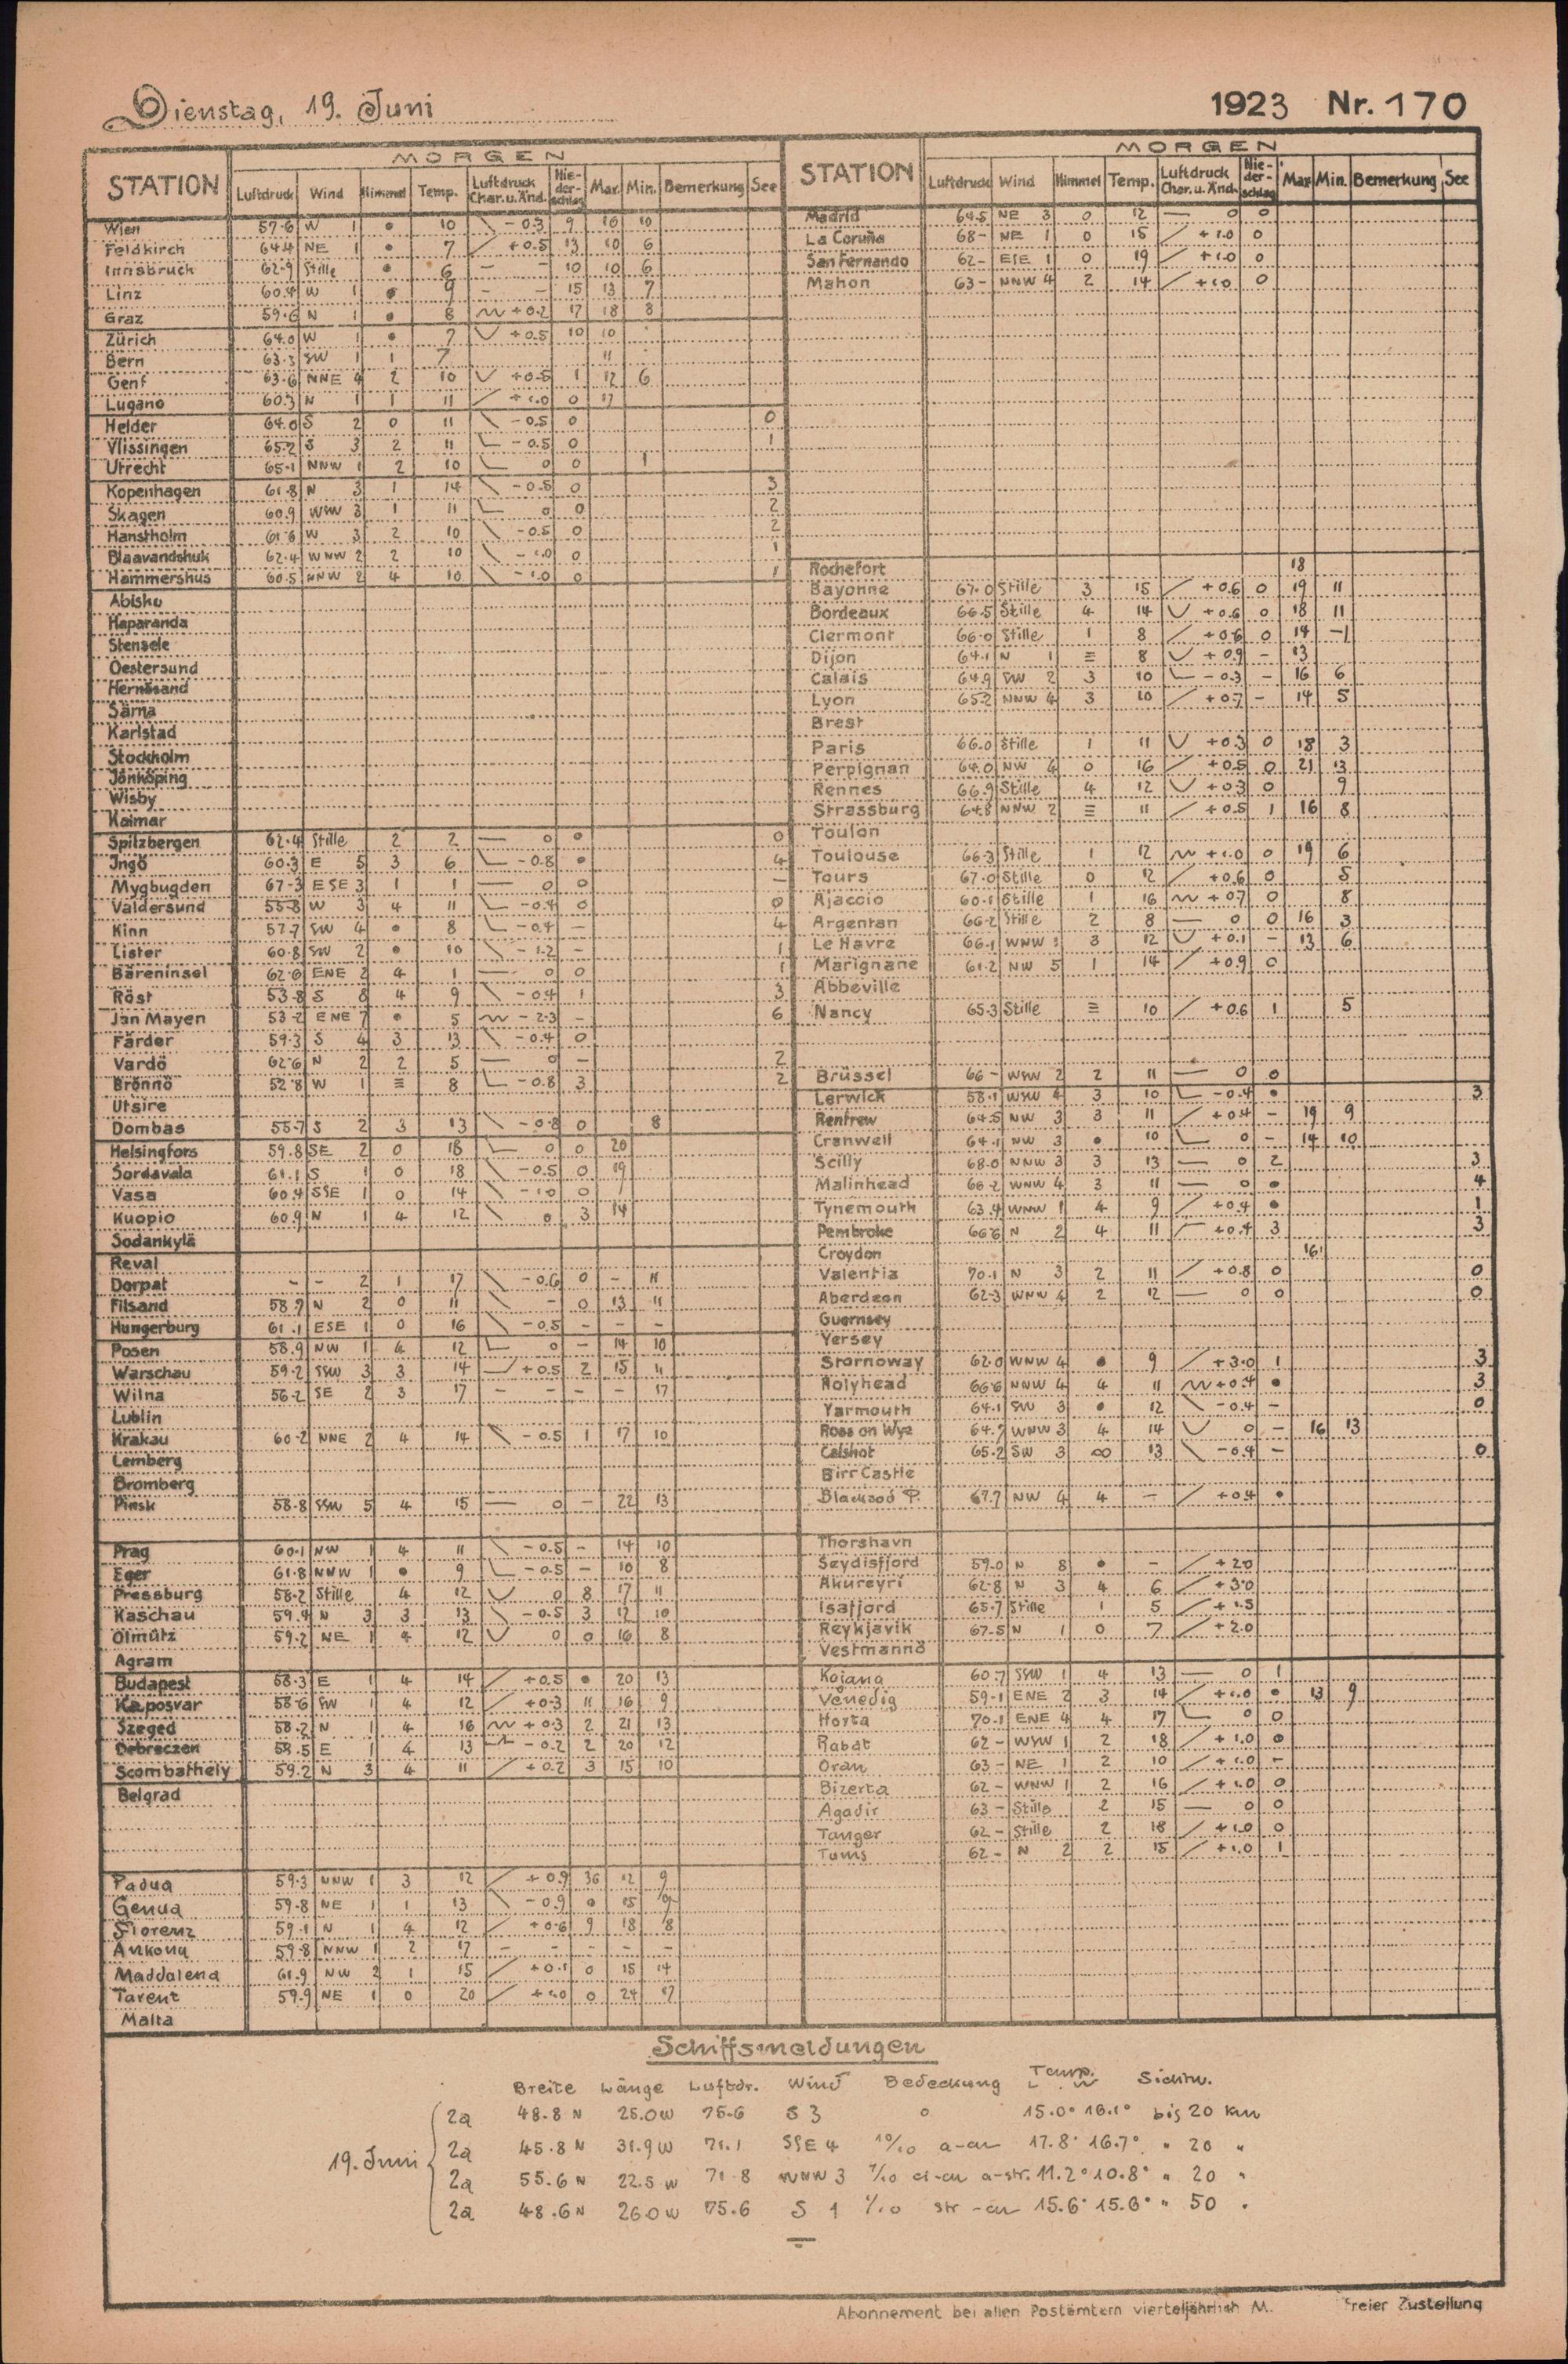 Dienstag, 19. Juni
1923 Nr. 170
MORGEN
STATION Luftdruck Wind Himmel Temp. Luftdruck Char. u. Änd. Nie-der-schlag Max. Min. Bemerkung See
Wien 57.6 W 1 • 10 \ -0.3 9 10 10
Feldkirch 64.4 NE 1 • 7 / +0.5 13 10 6
Innsbruck 62.9 Stille • 6 - - 10 10 6
Linz 60.4 W 1 • 9 - - 15 13 7
Graz 59.6 N 1 • 8 +0.2 17 18 8
Zürich 64.0 W 1 • 7 +0.5 10 10
Bern 63.3 SW 1 1 7 11
Genf 63.6 NNE 4 2 10 +0.5 1 12 6
Lugano 60.3 N 1 1 11 / +1.0 0 17
Helder 64.0 S 2 0 11 \ -0.5 0 0
Vlissingen 65.2 S 3 2 11 -0.5 0 1
Utrecht 65.1 NNW 1 2 10 0 0 1
Kopenhagen 61.8 N 3 1 14 \ -0.5 0 3
Skagen 60.9 WSW 3 1 11 0 0 2
Hanstholm 61.6 W 3 2 10 \ -0.5 0 2
Blaavandshuk 62.4 WNW 2 2 10 \ -1.0 0 1
Hammershus 60.5 NNW 2 4 10 \ -1.0 0 1
Abisku
Haparanda
Stensele
Oestersund
Hernösand
Särna
Karlstad
Stockholm
Jönköping
Wisby
Kalmar
Spitzbergen 62.4 Stille 2 2 — 0 • 0
Ingö 60.3 E 5 3 6 -0.8 • 4
Mygbugden 67.3 ESE 3 1 1 — 0 0 —
Valdersund 55.8 W 3 4 11 -0.4 0 0
Kinn 57.7 SW 4 • 8 -0.4 - 4
Lister 60.8 SW 2 • 10 \ -1.2 - 1
Bäreninsel 62.6 ENE 2 4 1 — 0 0 1
Röst 53.8 S 8 4 9 \ -0.4 1 3
Jan Mayen 53.2 ENE 7 • 5 -2.3 - 6
Färder 59.3 S 4 3 13 \ -0.4 0
Vardö 62.6 N 2 2 5 — 0 - 2
Brönnö 52.8 W 1 ≡ 8 -0.8 3 2
Utsire
Dombas 55.7 S 2 3 13 \ -0.8 0 8
Helsingfors 59.8 SE 2 0 18 0 0 20
Sordavala 61.1 S 1 0 18 \ -0.5 0 19
Vasa 60.4 SSE 1 0 14 \ -1.0 0
Kuopio 60.9 N 1 4 12 \ 0 3 14
Sodankylä
Reval
Dorpat - - 2 1 17 \ -0.6 0 - 11
Filsand 58.7 N 2 0 11 \ - 0 13 11
Hungerburg 61.1 ESE 1 0 16 \ -0.5 - - -
Posen 58.9 NW 1 4 12 0 - 14 10
Warschau 59.2 SSW 3 3 14 +0.5 2 15 11
Wilna 56.2 SE 2 3 17 - - - - 17
Lublin
Krakau 60.2 NNE 2 4 14 \ -0.5 1 17 10
Lemberg
Bromberg
Pinsk 58.8 SSW 5 4 15 — 0 - 22 13
Prag 60.1 NW 1 4 11 \ -0.5 - 14 10
Eger 61.8 NNW 1 • 9 -0.5 - 10 8
Pressburg 58.2 Stille 4 12 0 8 17 11
Kaschau 59.4 N 3 3 13 \ -0.5 3 17 10
Olmütz 59.2 NE 1 4 12 0 0 16 8
Agram
Budapest 58.3 E 1 4 14 / +0.5 • 20 13
Kaposvar 58.6 SW 1 4 12 / +0.3 11 16 9
Szeged 58.2 N 1 4 16 +0.3 2 21 13
Debreczen 58.5 E 1 4 13 -0.2 2 20 12
Scombathely 59.2 N 3 4 11 / +0.2 3 15 10
Belgrad
Padua 59.3 NNW 1 3 12 / +0.9 36 12 9
Genua 59.8 NE 1 1 13 \ -0.9 0 15
Florenz 59.1 N 1 4 12 / +0.6 9 18 8
Ankona 59.8 NNW 1 2 17 - - - - -
Maddalena 61.9 NW 2 1 15 / +0.1 0 15 14
Tarent 59.9 NE 1 0 20 / +1.0 0 24 17
Malta
MORGEN
STATION Luftdruck Wind Himmel Temp. Luftdruck Char. u. Änd. Nie-der-schlag Max. Min. Bemerkung See
Madrid 64.5 NE 3 0 12 — 0 0
La Coruña 68- NE 1 0 15 / +1.0 0
San Fernando 62- ESE 1 0 19 / +1.0 0
Mahon 63- NNW 4 2 14 / +1.0 0
Rochefort 18
Bayonne 67.0 Stille 3 15 / +0.6 0 19 11
Bordeaux 66.5 Stille 4 14 +0.6 0 18 11
Clermont 66.0 Stille 1 8 / +0.6 0 14 -1
Dijon 64.1 N 1 ≡ 8 +0.9 - 13
Calais 64.9 SW 2 3 10 -0.3 - 16 6
Lyon 65.2 NNW 4 3 10 / +0.7 - 14 5
Brest
Paris 66.0 Stille 1 11 +0.3 0 18 3
Perpignan 64.0 NW 4 0 16 / +0.5 0 21 13
Rennes 66.9 Stille 4 12 +0.3 0 9
Strassburg 64.8 NNW 2 ≡ 11 / +0.5 1 16 8
Toulon
Toulouse 66.3 Stille 1 12 +1.0 0 19 6
Tours 67.0 Stille 0 12 / +0.6 0 5
Ajaccio 60.1 Stille 1 16 +0.7 0 8
Argentan 66.2 Stille 2 8 — 0 0 16 3
Le Havre 66.1 WNW 3 12 +0.1 - 13 6
Marignane 61.2 NW 5 1 14 / +0.9 0
Abbeville
Nancy 65.3 Stille ≡ 10 / +0.6 1 5
Brüssel 66- WSW 2 2 11 — 0 0
Lerwick 58.1 WSW 4 3 10 -0.4 • 3
Renfrew 64.5 NW 3 3 11 / +0.4 - 19 9
Cranwell 64.1 NW 3 • 10 0 - 14 10
Scilly 68.0 NNW 3 3 13 — 0 2 3
Malinhead 66.2 WNW 4 3 11 — 0 • 4
Tynemouth 63.4 WNW 1 4 9 / +0.4 • 1
Pembroke 66.6 N 2 4 11 +0.4 3 3
Croydon 16
Valentia 70.1 N 3 2 11 / +0.8 0 0
Aberdeen 62.3 WNW 4 2 12 — 0 0 0
Guernsey
Yersey
Stornoway 62.0 WNW 4 • 9 / +3.0 1 3
Holyhead 66.6 NNW 4 4 11 +0.4 • 3
Yarmouth 64.1 SW 3 • 12 \ -0.4 - 0
Ross on Wye 64.7 WNW 3 4 14 0 - 16 13
Calshot 65.2 SW 3 ∞ 13 \ -0.4 - 0
Birr Castle
Blacksod P. 67.7 NW 4 4 - / +0.4 •
Thorshavn
Seydisfjord 59.0 N 8 • - / +2.0
Akureyri 62.8 N 3 4 6 / +3.0
Isafjord 65.7 Stille 1 5 / +1.5
Reykjavik 67.5 N 1 0 7 / +2.0
Vestmannö
Kojana 60.7 SSW 1 4 13 — 0 1
Venedig 59.1 ENE 2 3 14 / +1.0 • 13 9
Horta 70.1 ENE 4 4 17 0 0
Rabat 62- WSW 1 2 18 / +1.0 0
Oran 63- NE 1 2 10 / +1.0 -
Bizerta 62- WNW 1 2 16 / +1.0 0
Agadir 63- Stille 2 15 — 0 0
Tanger 62- Stille 2 18 / +1.0 0
Tunis 62- N 2 2 15 / +1.0 1
Schiffsmeldungen
Breite Länge Luftdr. Wind Bedeckung Temp. L W Sichtw.
19. Juni
2a 48.8 N 25.0 W 75.6 S 3 0 15.0° 16.1° bis 20 km
2a 45.8 N 31.9 W 71.1 SSE 4 10/10 a-cu 17.8° 16.7° " 20 "
2a 55.6 N 22.5 W 71.8 WNW 3 7/10 ci-cu a-str. 11.2° 10.8° " 20 "
2a 48.6 N 26.0 W 75.6 S 1 str-cu 15.6° 15.6° " 50 "
Abonnement bei allen Postämtern vierteljährlich M. Freier Zustellung